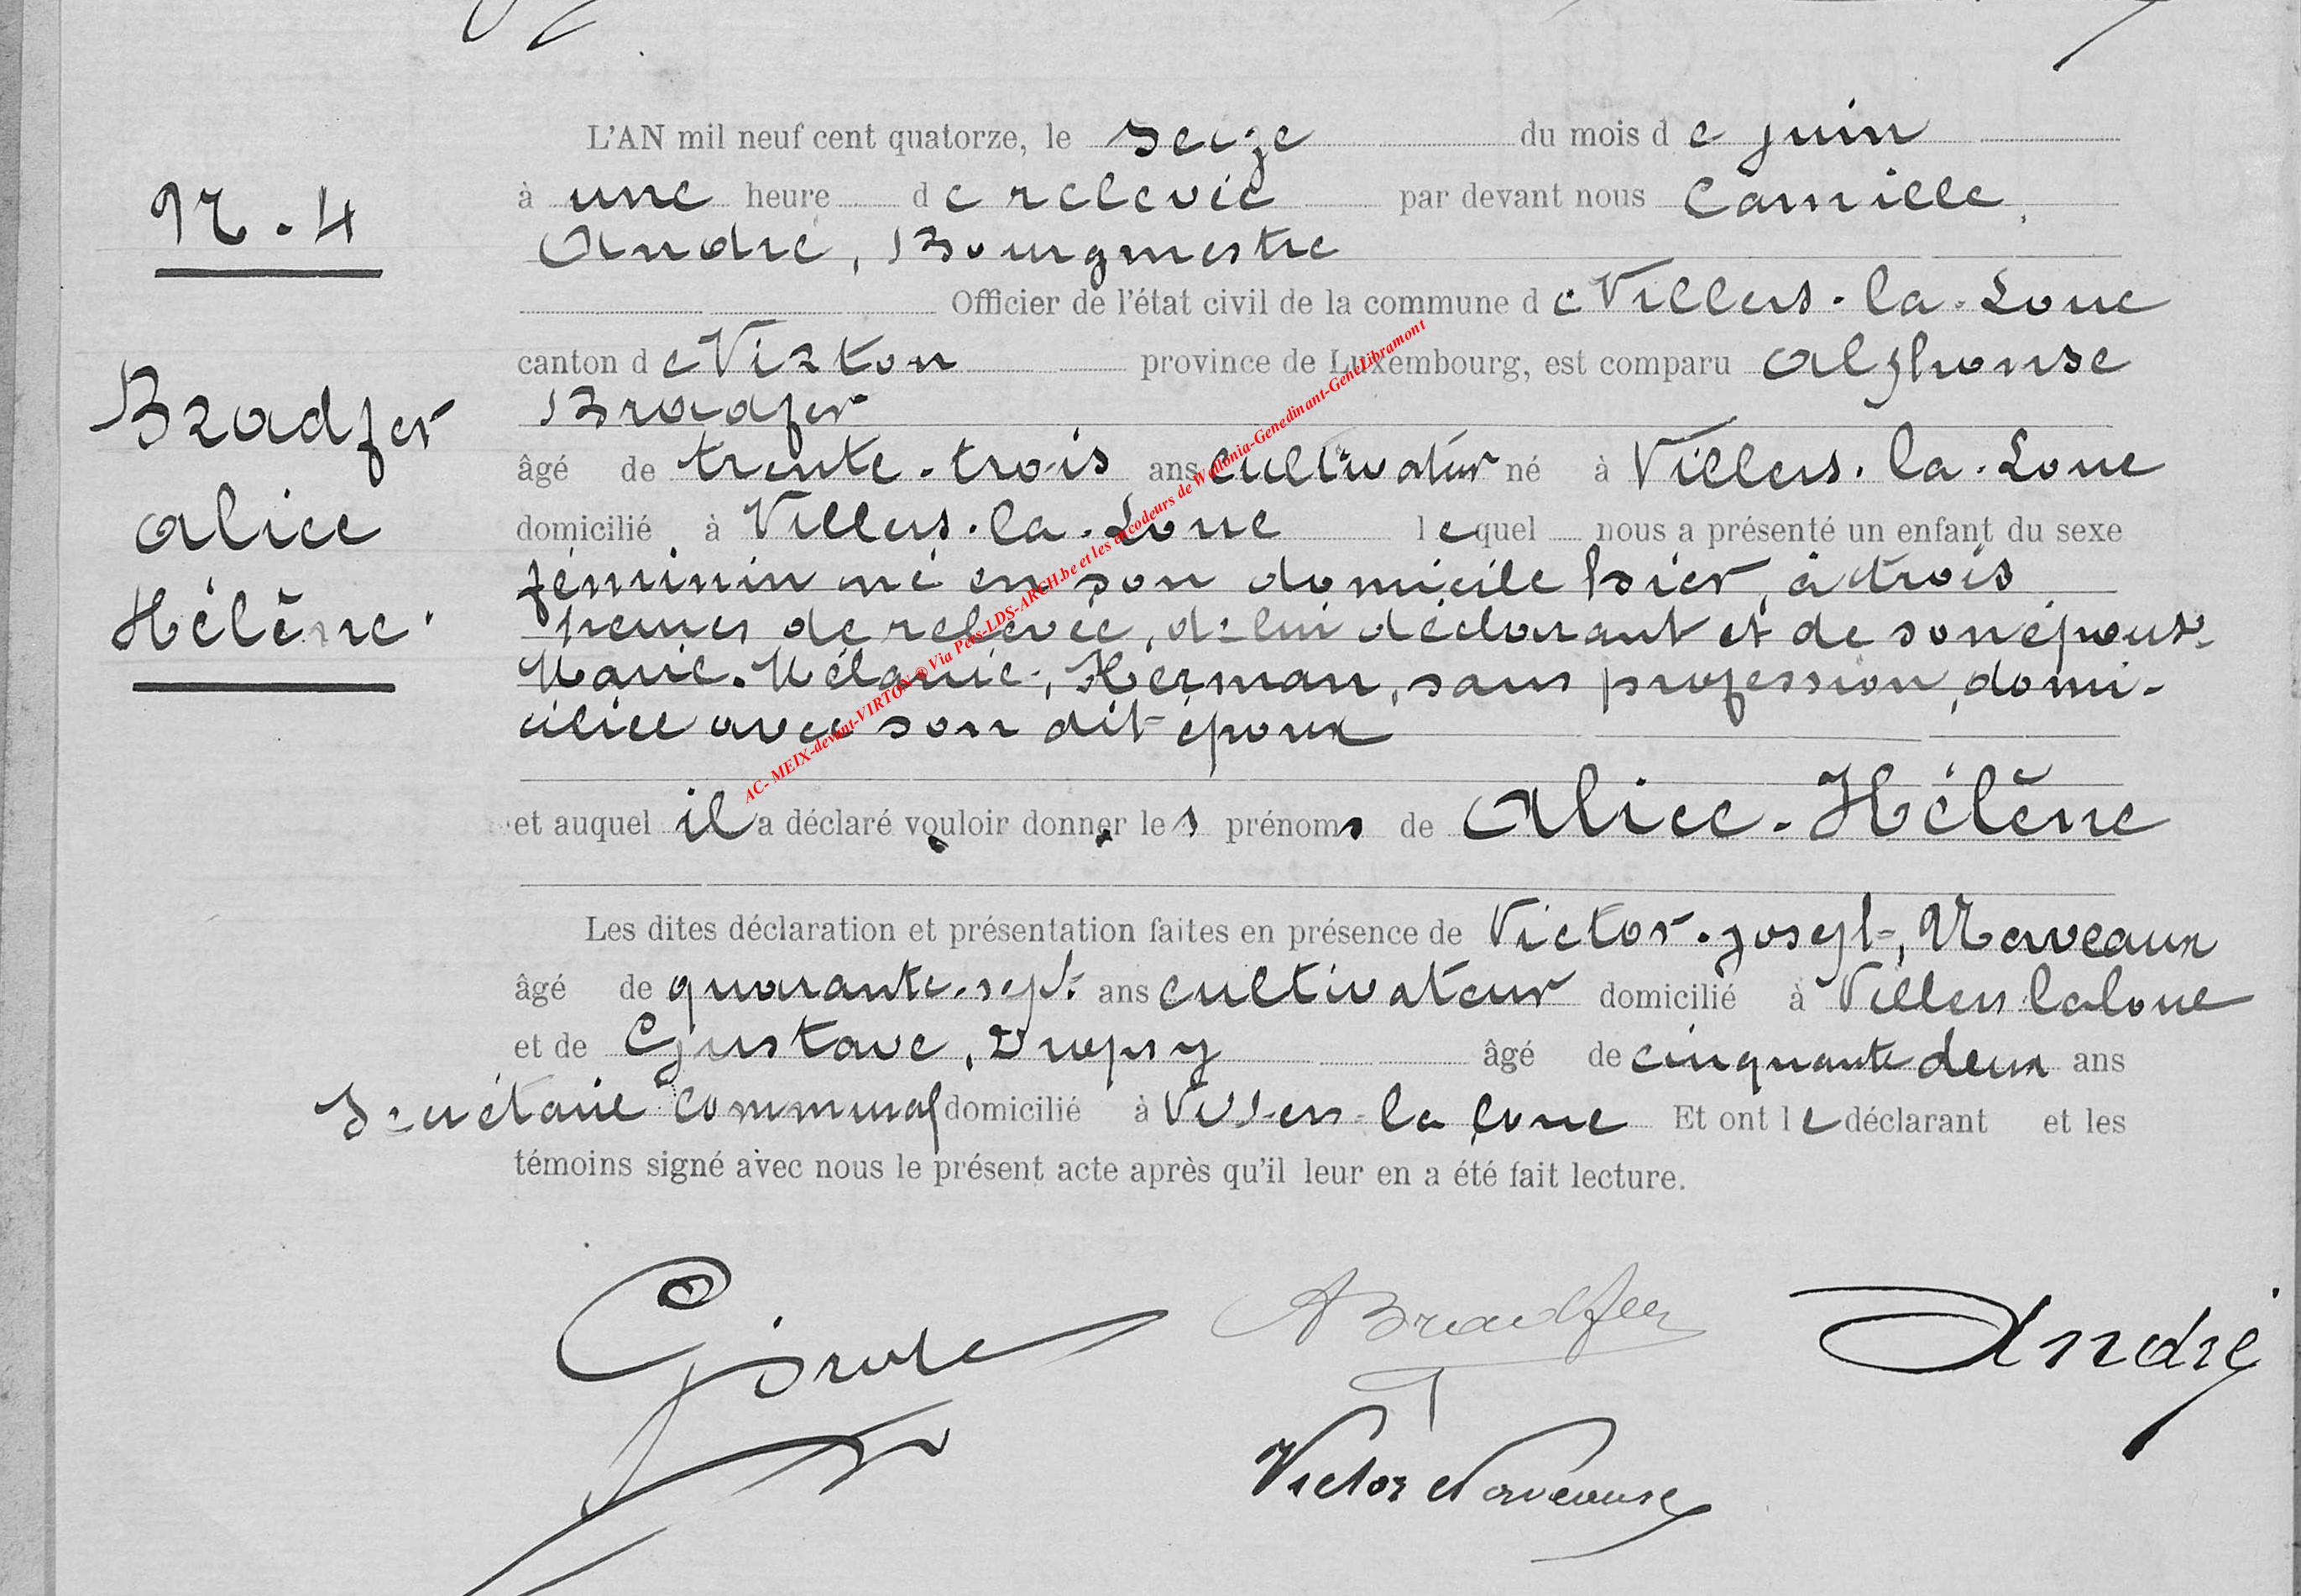 L'AN mil neuf cent quatorze, le seize du mois de juin
N. 4
à une heure de relevée par devant nous Camille,
André, Bourgmestre
Officier de l'état civil de la commune de Villers-la-Loue
canton de Virton province de Luxembourg, est comparu Alphonse
Bradfer
Bradfer
Alice
Hélène.
âgé de trente-trois ans cultivateur né à Villers-la-Loue
domicilié à Villers-la-Loue lequel nous a présenté un enfant du sexe
féminin né en son domicile hier, à trois
heures de relevée, de lui déclarant et de son épouse
Marie-Mélanie, Herman, sans profession, domi-
ciliée avec son dit époux
et auquel il a déclaré vouloir donner les prénoms de Alice-Hélène
Les dites déclaration et présentation faites en présence de Victor-Joseph, Nerveaux
âgé de quarante-sept ans cultivateur domicilié à Villers laloue
et de Gustave, Dropsy âgé de cinquante deux ans
Secrétaire communal domicilié à Villers-la-Loue Et ont le déclarant et les
témoins signé avec nous le présent acte après qu'il leur en a été fait lecture.
ABradfer
André
Victor
AC- MEIX-devant-VIRTON @ Via Pers-LDS-ARCH.be et les encodeurs de Wallonia-Genedinant-GeneLibramont